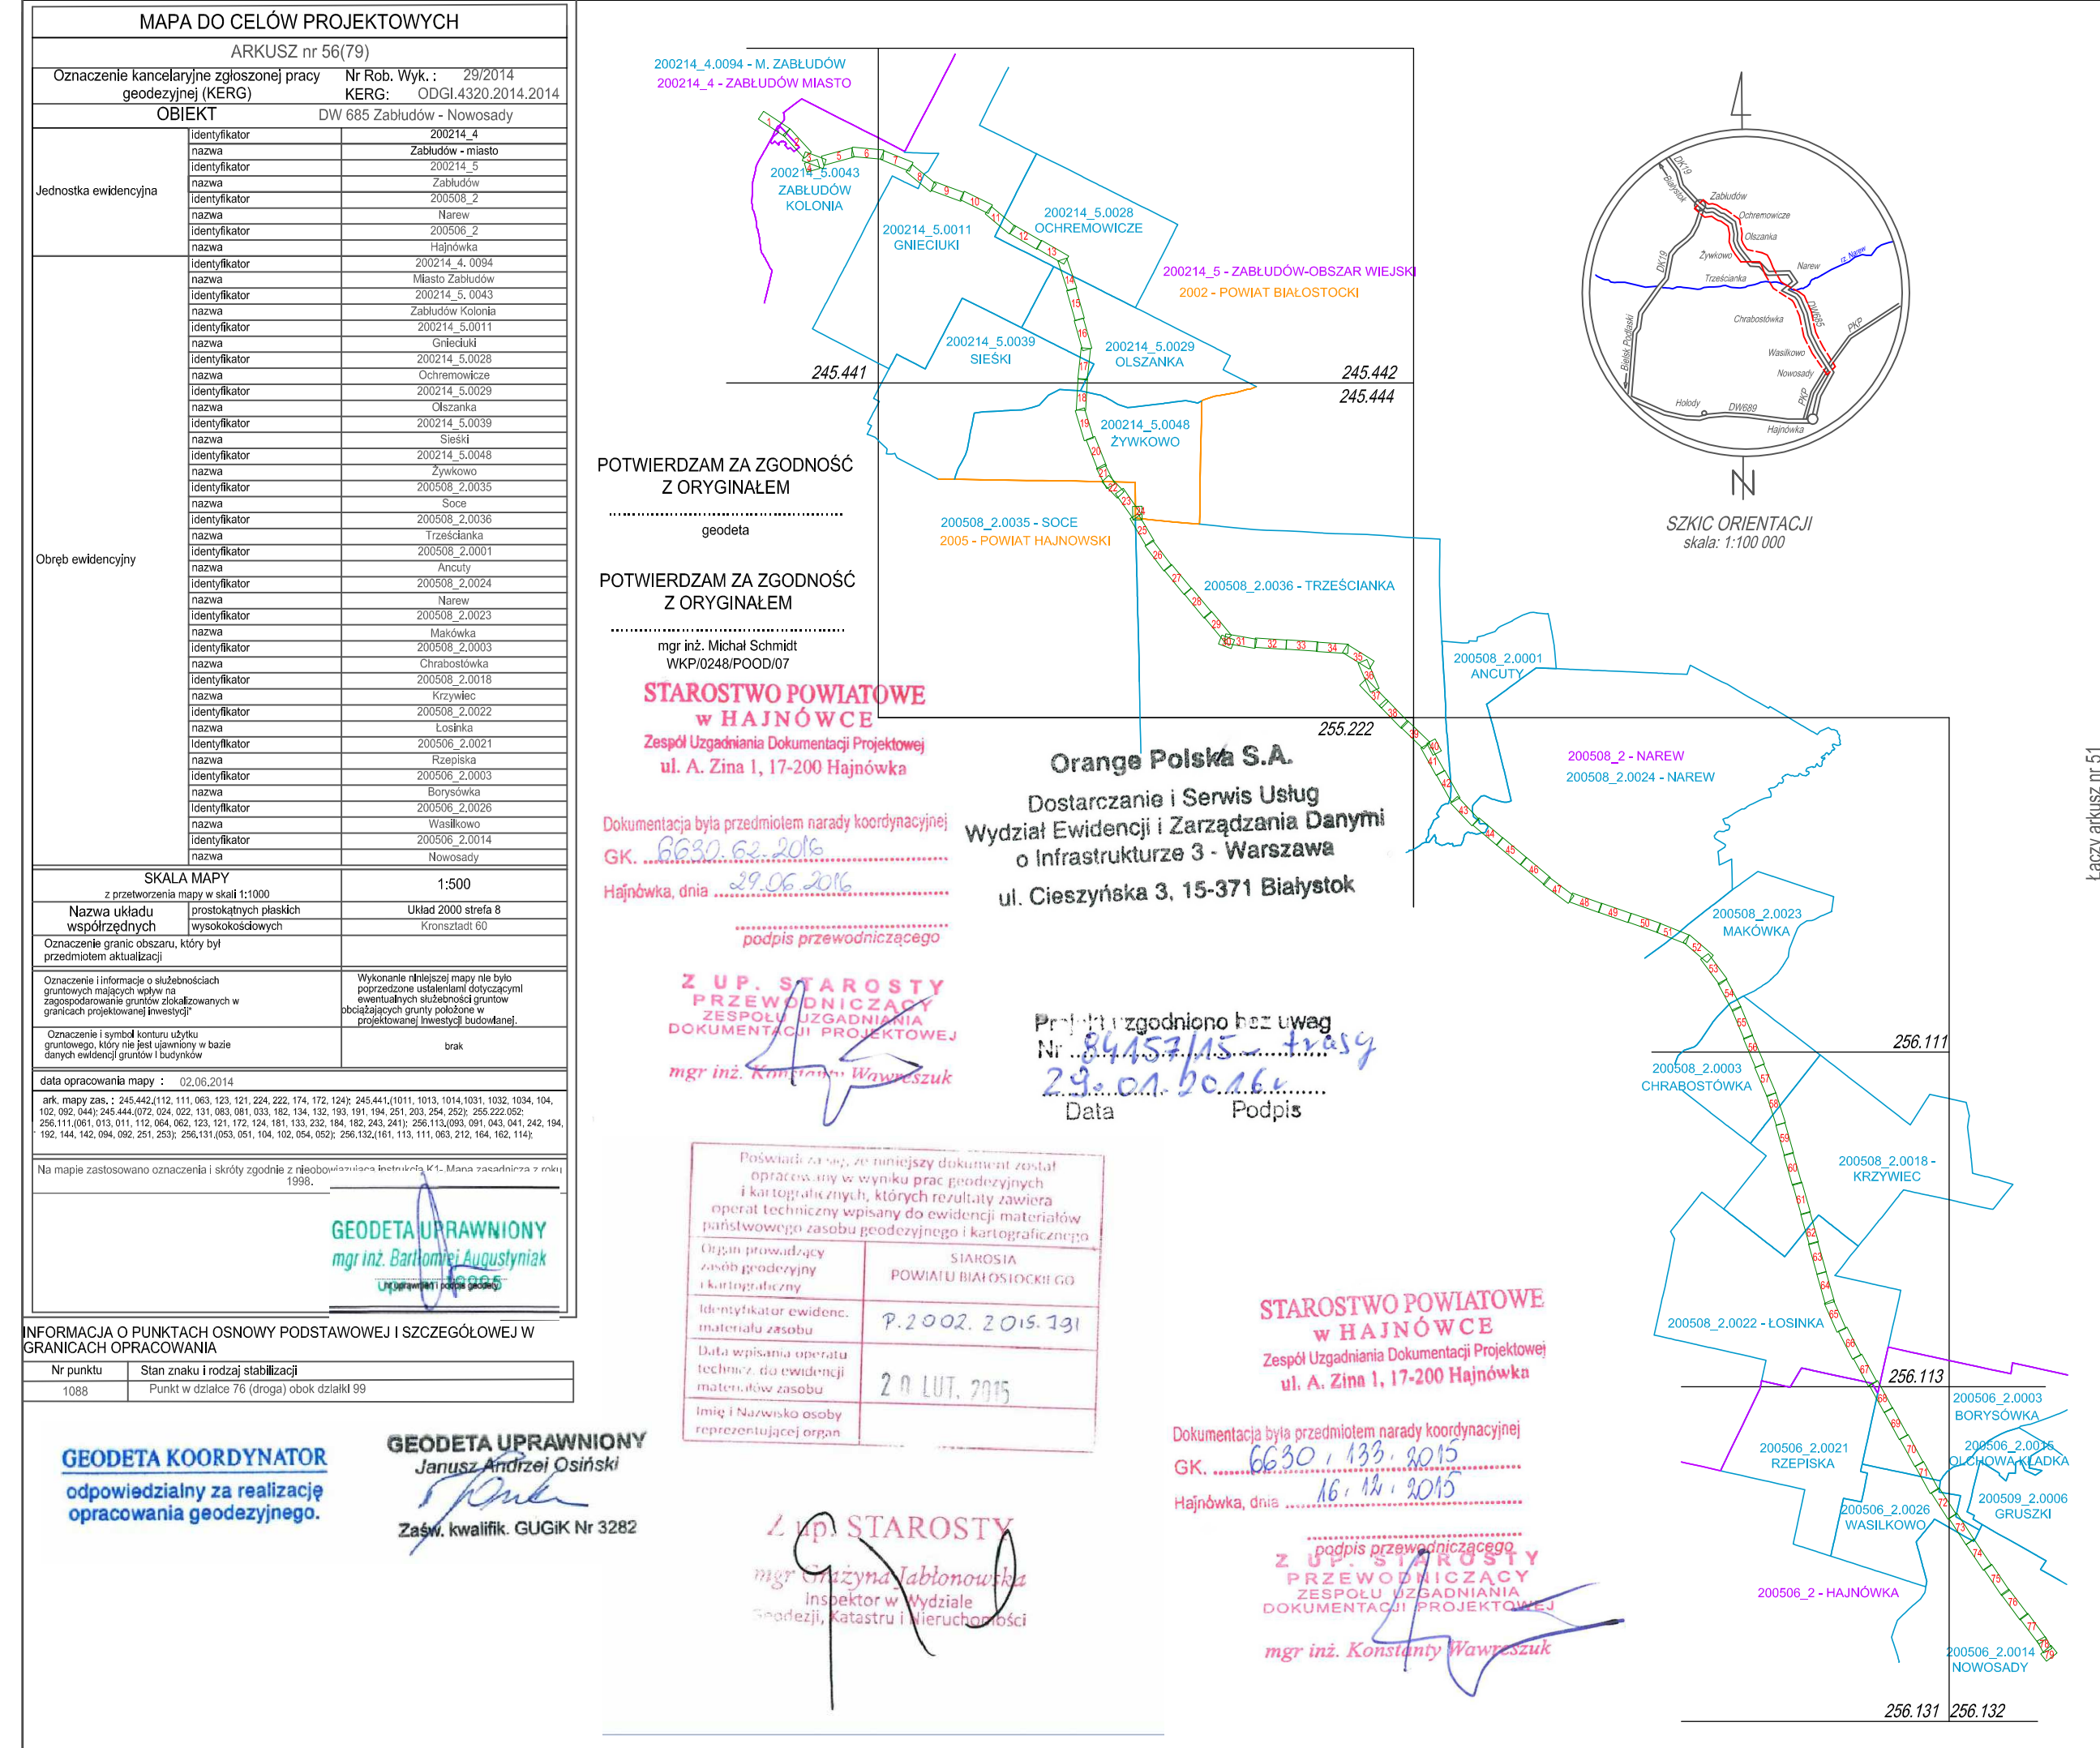 MAPA DO CELÓW PROJEKTOWYCH
ARKUSZ nr 56(79)
Oznaczenie kancelaryjne zgłoszonej pracy geodezyjnej (KERG)
Nr Rob. Wyk. : 29/2014
KERG: ODGI.4320.2014.2014
OBIEKT DW 685 Zabłudów - Nowosady
Jednostka ewidencyjna
identyfikator 200214_4
nazwa Zabłudów - miasto
identyfikator 200214_5
nazwa Zabłudów
identyfikator 200508_2
nazwa Narew
identyfikator 200506_2
nazwa Hajnówka
Obręb ewidencyjny
identyfikator 200214_4. 0094
nazwa Miasto Zabłudów
identyfikator 200214_5. 0043
nazwa Zabłudów Kolonia
identyfikator 200214_5.0011
nazwa Gnieciuki
identyfikator 200214_5.0028
nazwa Ochremowicze
identyfikator 200214_5.0029
nazwa Olszanka
identyfikator 200214_5.0039
nazwa Sieśki
identyfikator 200214_5.0048
nazwa Żywkowo
identyfikator 200508_2.0035
nazwa Soce
identyfikator 200508_2.0036
nazwa Trześcianka
identyfikator 200508_2.0001
nazwa Ancuty
identyfikator 200508_2.0024
nazwa Narew
identyfikator 200508_2.0023
nazwa Makówka
identyfikator 200508_2.0003
nazwa Chrabostówka
identyfikator 200508_2.0018
nazwa Krzywiec
identyfikator 200508_2.0022
nazwa Łosinka
identyfikator 200506_2.0021
nazwa Rzepiska
identyfikator 200506_2.0003
nazwa Borysówka
identyfikator 200506_2.0026
nazwa Wasilkowo
identyfikator 200506_2.0014
nazwa Nowosady
SKALA MAPY
z przetworzenia mapy w skali 1:1000
1:500
Nazwa układu współrzędnych
prostokątnych płaskich Układ 2000 strefa 8
wysokokościowych Kronsztadt 60
Oznaczenie granic obszaru, który był
przedmiotem aktualizacji
Oznaczenie i informacje o służebnościach
gruntowych mających wpływ na
zagospodarowanie gruntów zlokalizowanych w
granicach projektowanej inwestycji"
Wykonanie niniejszej mapy nie było
poprzedzone ustaleniami dotyczącymi
ewentualnych służebności gruntow
obciążających grunty położone w
projektowanej inwestycji budowlanej.
Oznaczenie i symbol konturu użytku
gruntowego, który nie jest ujawniony w bazie
danych ewidencji gruntów i budynków
brak
data opracowania mapy : 02.06.2014
ark. mapy zas. : 245.442.(112, 111, 063, 123, 121, 224, 222, 174, 172, 124); 245.441.(1011, 1013, 1014,1031, 1032, 1034, 104,
102, 092, 044); 245.444.(072, 024, 022, 131, 083, 081, 033, 182, 134, 132, 193, 191, 194, 251, 203, 254, 252); 255.222.052;
256,111.(061, 013, 011, 112, 064, 062, 123, 121, 172, 124, 181, 133, 232, 184, 182, 243, 241); 256,113.(093, 091, 043, 041, 242, 194,
192, 144, 142, 094, 092, 251, 253); 256,131.(053, 051, 104, 102, 054, 052); 256,132.(161, 113, 111, 063, 212, 164, 162, 114);
Na mapie zastosowano oznaczenia i skróty zgodnie z nieobowiązującą instrukcją K1- Mapa zasadnicza z roku
1998.
GEODETA UPRAWNIONY
mgr inż. Bartłomiej Augustyniak
INFORMACJA O PUNKTACH OSNOWY PODSTAWOWEJ I SZCZEGÓŁOWEJ W
GRANICACH OPRACOWANIA
Nr punktu Stan znaku i rodzaj stabilizacji
1088 Punkt w działce 76 (droga) obok działki 99
GEODETA KOORDYNATOR
odpowiedzialny za realizację
opracowania geodezyjnego.
GEODETA UPRAWNIONY
Janusz Andrzej Osiński
Zaśw. kwalifik. GUGiK Nr 3282
POTWIERDZAM ZA ZGODNOŚĆ
Z ORYGINAŁEM
geodeta
POTWIERDZAM ZA ZGODNOŚĆ
Z ORYGINAŁEM
mgr inż. Michał Schmidt
WKP/0248/POOD/07
STAROSTWO POWIATOWE
w HAJNÓWCE
Zespół Uzgadniania Dokumentacji Projektowej
ul. A. Zina 1, 17-200 Hajnówka
Dokumentacja była przedmiotem narady koordynacyjnej
GK. 6630.62.2016
Hajnówka, dnia 29.06.2016
podpis przewodniczącego
Z UP. STAROSTY
PRZEWODNICZĄCY
ZESPOŁU UZGADNIANIA
DOKUMENTACJI PROJEKTOWEJ
mgr inż. Konstanty Wawreszuk
Orange Polska S.A.
Dostarczanie i Serwis Usług
Wydział Ewidencji i Zarządzania Danymi
o Infrastrukturze 3 - Warszawa
ul. Cieszyńska 3, 15-371 Białystok
Projekt uzgodniono bez uwag
Nr 84157/15 - trasy
29.01.2016r
Data Podpis
Poświadcza się, że niniejszy dokument został
opracowany w wyniku prac geodezyjnych
i kartograficznych, których rezultaty zawiera
operat techniczny wpisany do ewidencji materiałów
państwowego zasobu geodezyjnego i kartograficznego
Organ prowadzący
zasób geodezyjny
i kartograficzny
STAROSTA
POWIATU BIAŁOSTOCKIEGO
Identyfikator ewidenc.
materiału zasobu
P.2002.2015.791
Data wpisania operatu
technicz. do ewidencji
materiałów zasobu
20 LUT. 2015
Imię i Nazwisko osoby
reprezentującej organ
Z up. STAROSTY
mgr Grażyna Jabłonowska
Inspektor w Wydziale
Geodezji, Katastru i Nieruchomości
STAROSTWO POWIATOWE
w HAJNÓWCE
Zespół Uzgadniania Dokumentacji Projektowej
ul. A. Zina 1, 17-200 Hajnówka
Dokumentacja była przedmiotem narady koordynacyjnej
GK. 6630.133.2015
Hajnówka, dnia 16.12.2015
podpis przewodniczącego
Z UP. STAROSTY
PRZEWODNICZĄCY
ZESPOŁU UZGADNIANIA
DOKUMENTACJI PROJEKTOWEJ
mgr inż. Konstanty Wawreszuk
200214_4.0094 - M. ZABŁUDÓW
200214_4 - ZABŁUDÓW MIASTO
200214_5.0043
ZABŁUDÓW
KOLONIA
200214_5.0011
GNIECIUKI
200214_5.0028
OCHREMOWICZE
200214_5 - ZABŁUDÓW-OBSZAR WIEJSKI
2002 - POWIAT BIAŁOSTOCKI
200214_5.0039
SIEŚKI
200214_5.0029
OLSZANKA
245.441
245.442
245.444
200214_5.0048
ŻYWKOWO
200508_2.0035 - SOCE
2005 - POWIAT HAJNOWSKI
200508_2.0036 - TRZEŚCIANKA
200508_2.0001
ANCUTY
255.222
200508_2 - NAREW
200508_2.0024 - NAREW
200508_2.0023
MAKÓWKA
256.111
200508_2.0003
CHRABOSTÓWKA
200508_2.0018 -
KRZYWIEC
200508_2.0022 - ŁOSINKA
256.113
200506_2.0003
BORYSÓWKA
200506_2.0021
RZEPISKA
200506_2.0015
OLCHOWA KŁADKA
200509_2.0006
GRUSZKI
200506_2.0026
WASILKOWO
200506_2 - HAJNÓWKA
200506_2.0014
NOWOSADY
256.131 256.132
DK19
Białystok
Zabłudów
Ochremowicze
Olszanka
Żywkowo
Trześcianka
Narew
rz. Narew
DK19
Chrabostówka
DW685
PKP
Wasilkowo
Nowosady
Bielsk Podlaski
Hołody
DW689
PKP
Hajnówka
N
SZKIC ORIENTACJI
skala: 1:100 000
Łączy arkusz nr 51